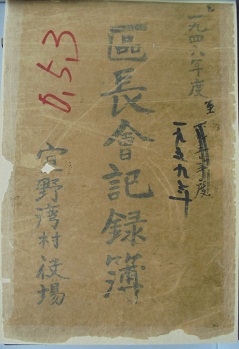 一九四八年度
至
一九五九年
區長會記録簿
宜野湾村役場
0.5.3